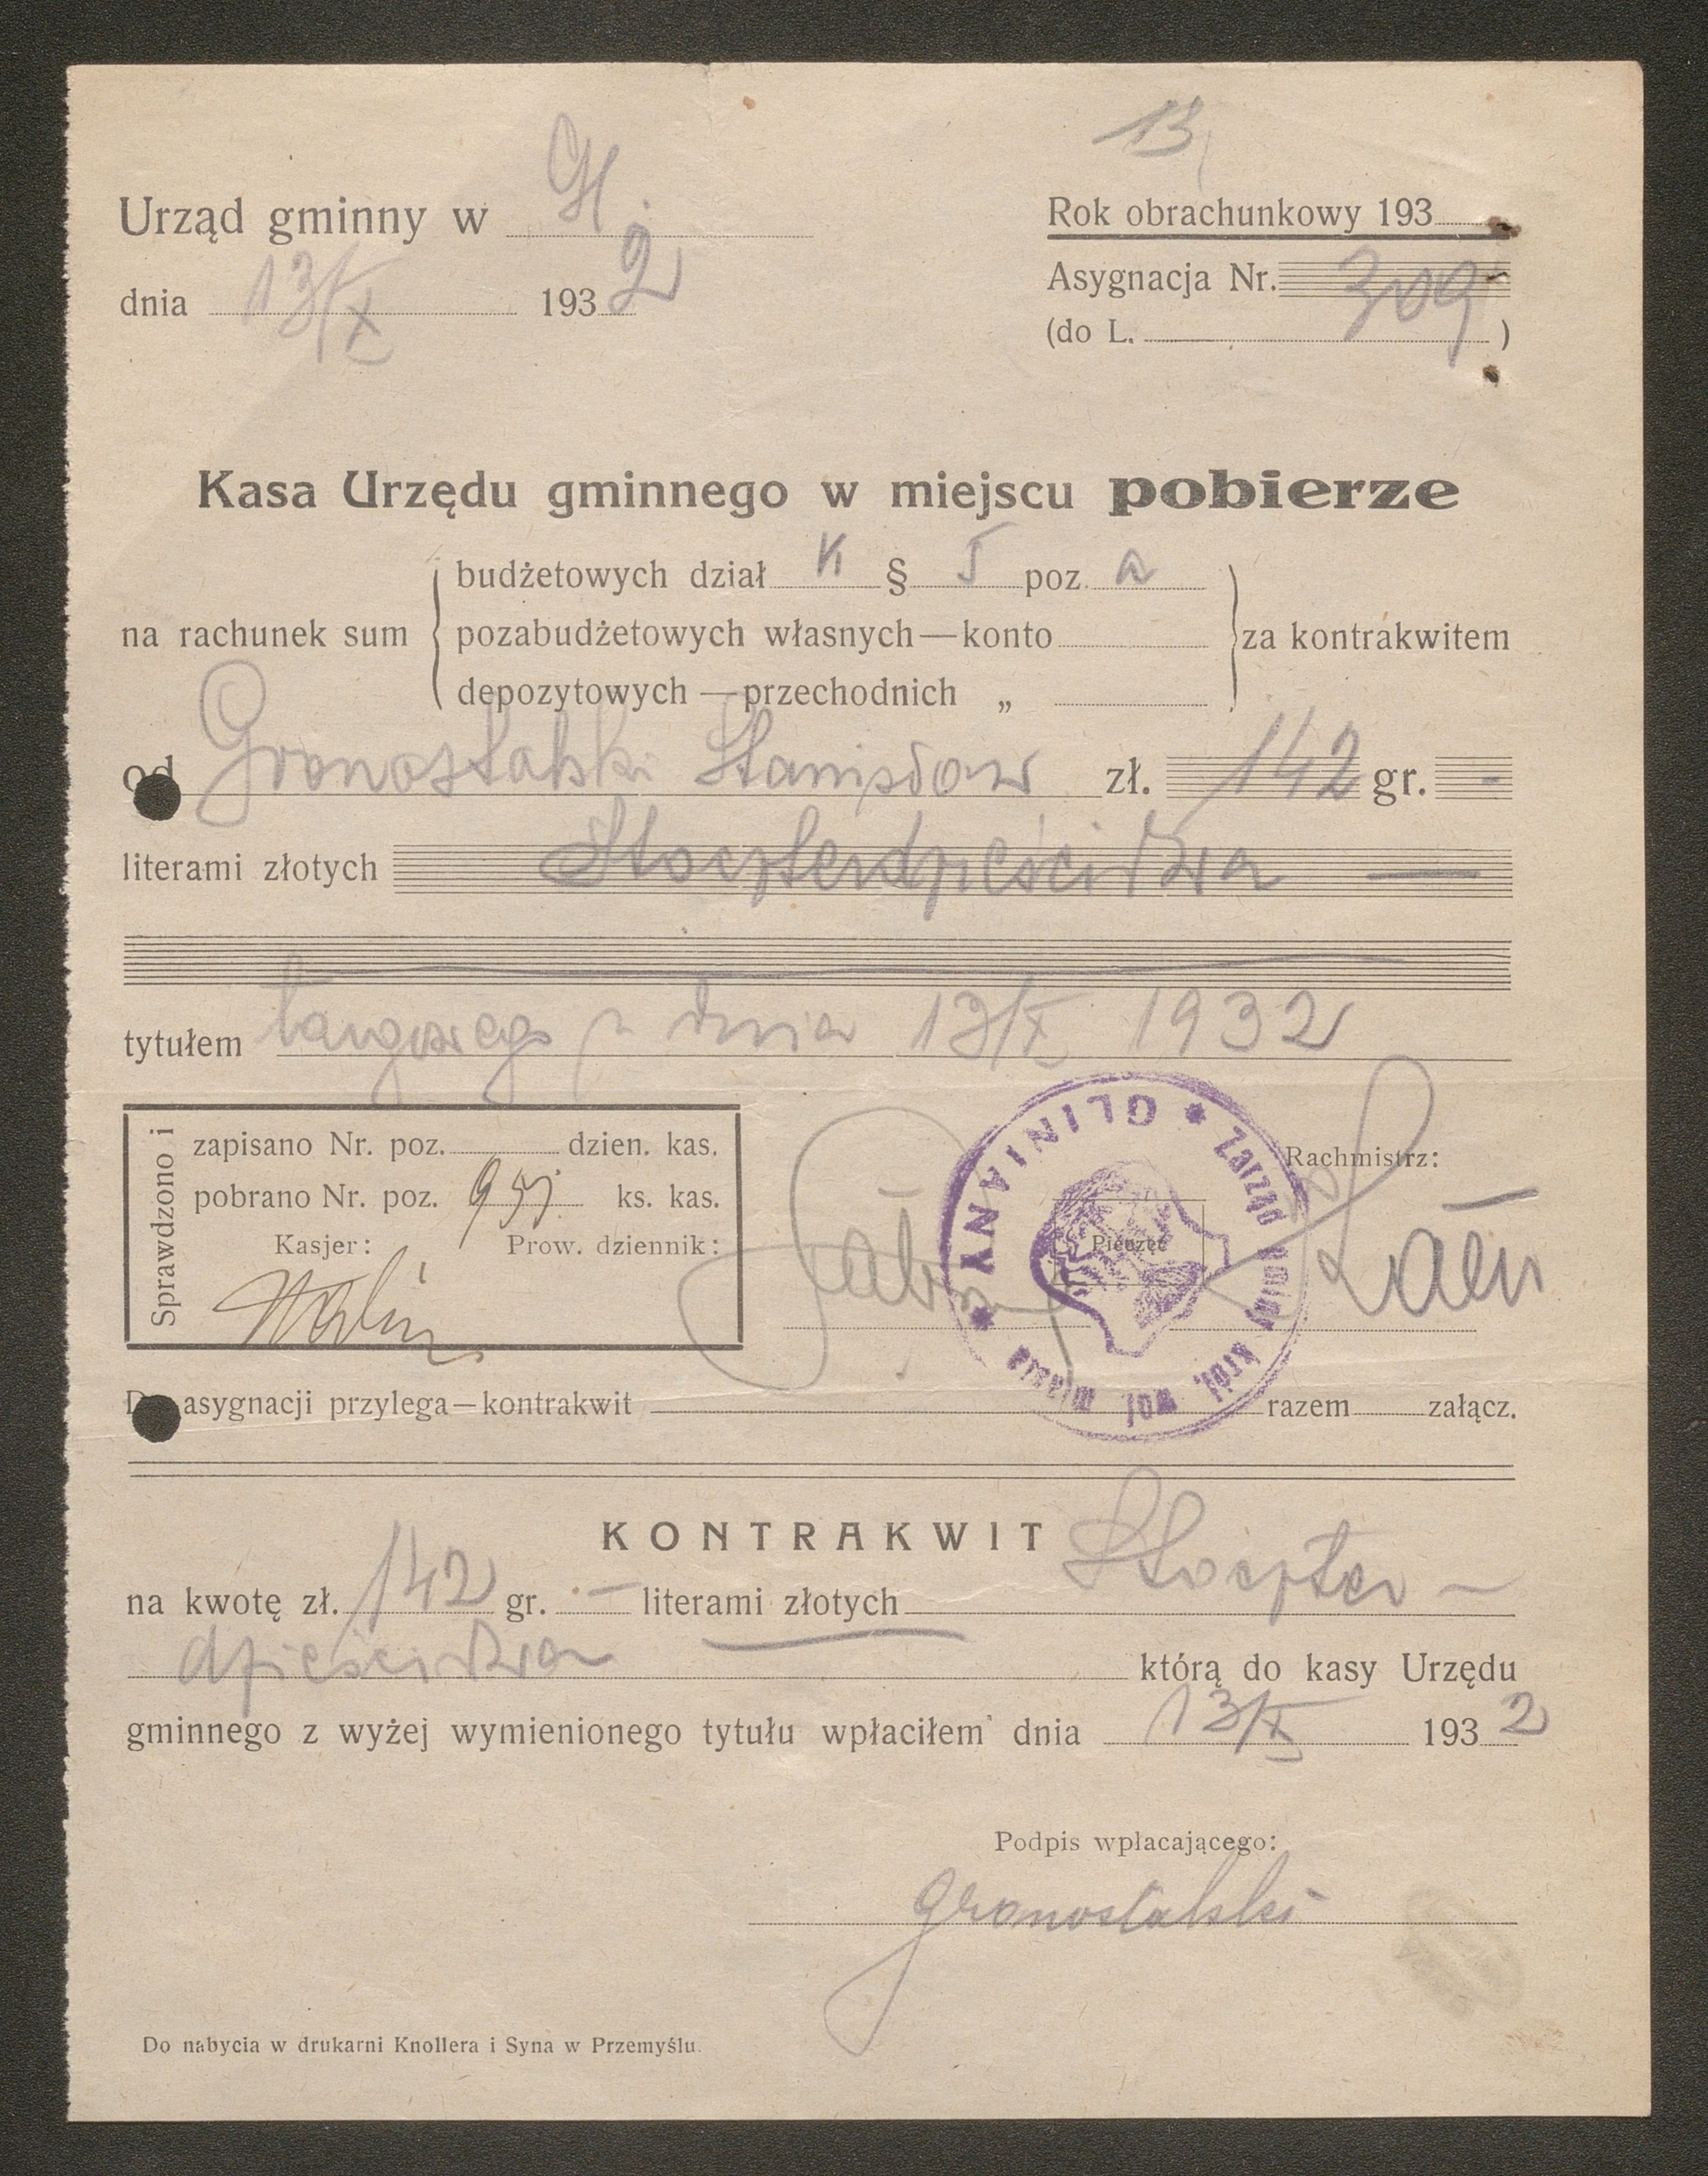 13
Urząd gminny w Gl.
Rok obrachunkowy 193
dnia 13/X 1932
Asygnacja Nr. 309
(do L. )
Kasa Urzędu gminnego w miejscu pobierze
na rachunek sum
budżetowych dział K § 5 poz. a
pozabudżetowych własnych—konto
depozytowych—przechodnich „
za kontrakwitem
od Gronostalski Stanisław zł. 142 gr. -
literami złotych Stoczterdzieścidwa —
tytułem targowego z dnia 13/X 1932
Sprawdzono i
zapisano Nr. poz. dzien. kas.
pobrano Nr. poz. ks. kas.
Kasjer: Prow. dziennik:
Rachmistrz:
Pieczęć
Zarząd król. wol. miasta
* GLINIANY *
Do asygnacji przylega—kontrakwit razem załącz.
KONTRAKWIT
na kwotę zł. 142 gr. — literami złotych Stoczter-
dzieścidwa którą do kasy Urzędu
gminnego z wyżej wymienionego tytułu wpłaciłem dnia 13/X 1932
Podpis wpłacającego:
Gronostalski
Do nabycia w drukarni Knollera i Syna w Przemyślu.